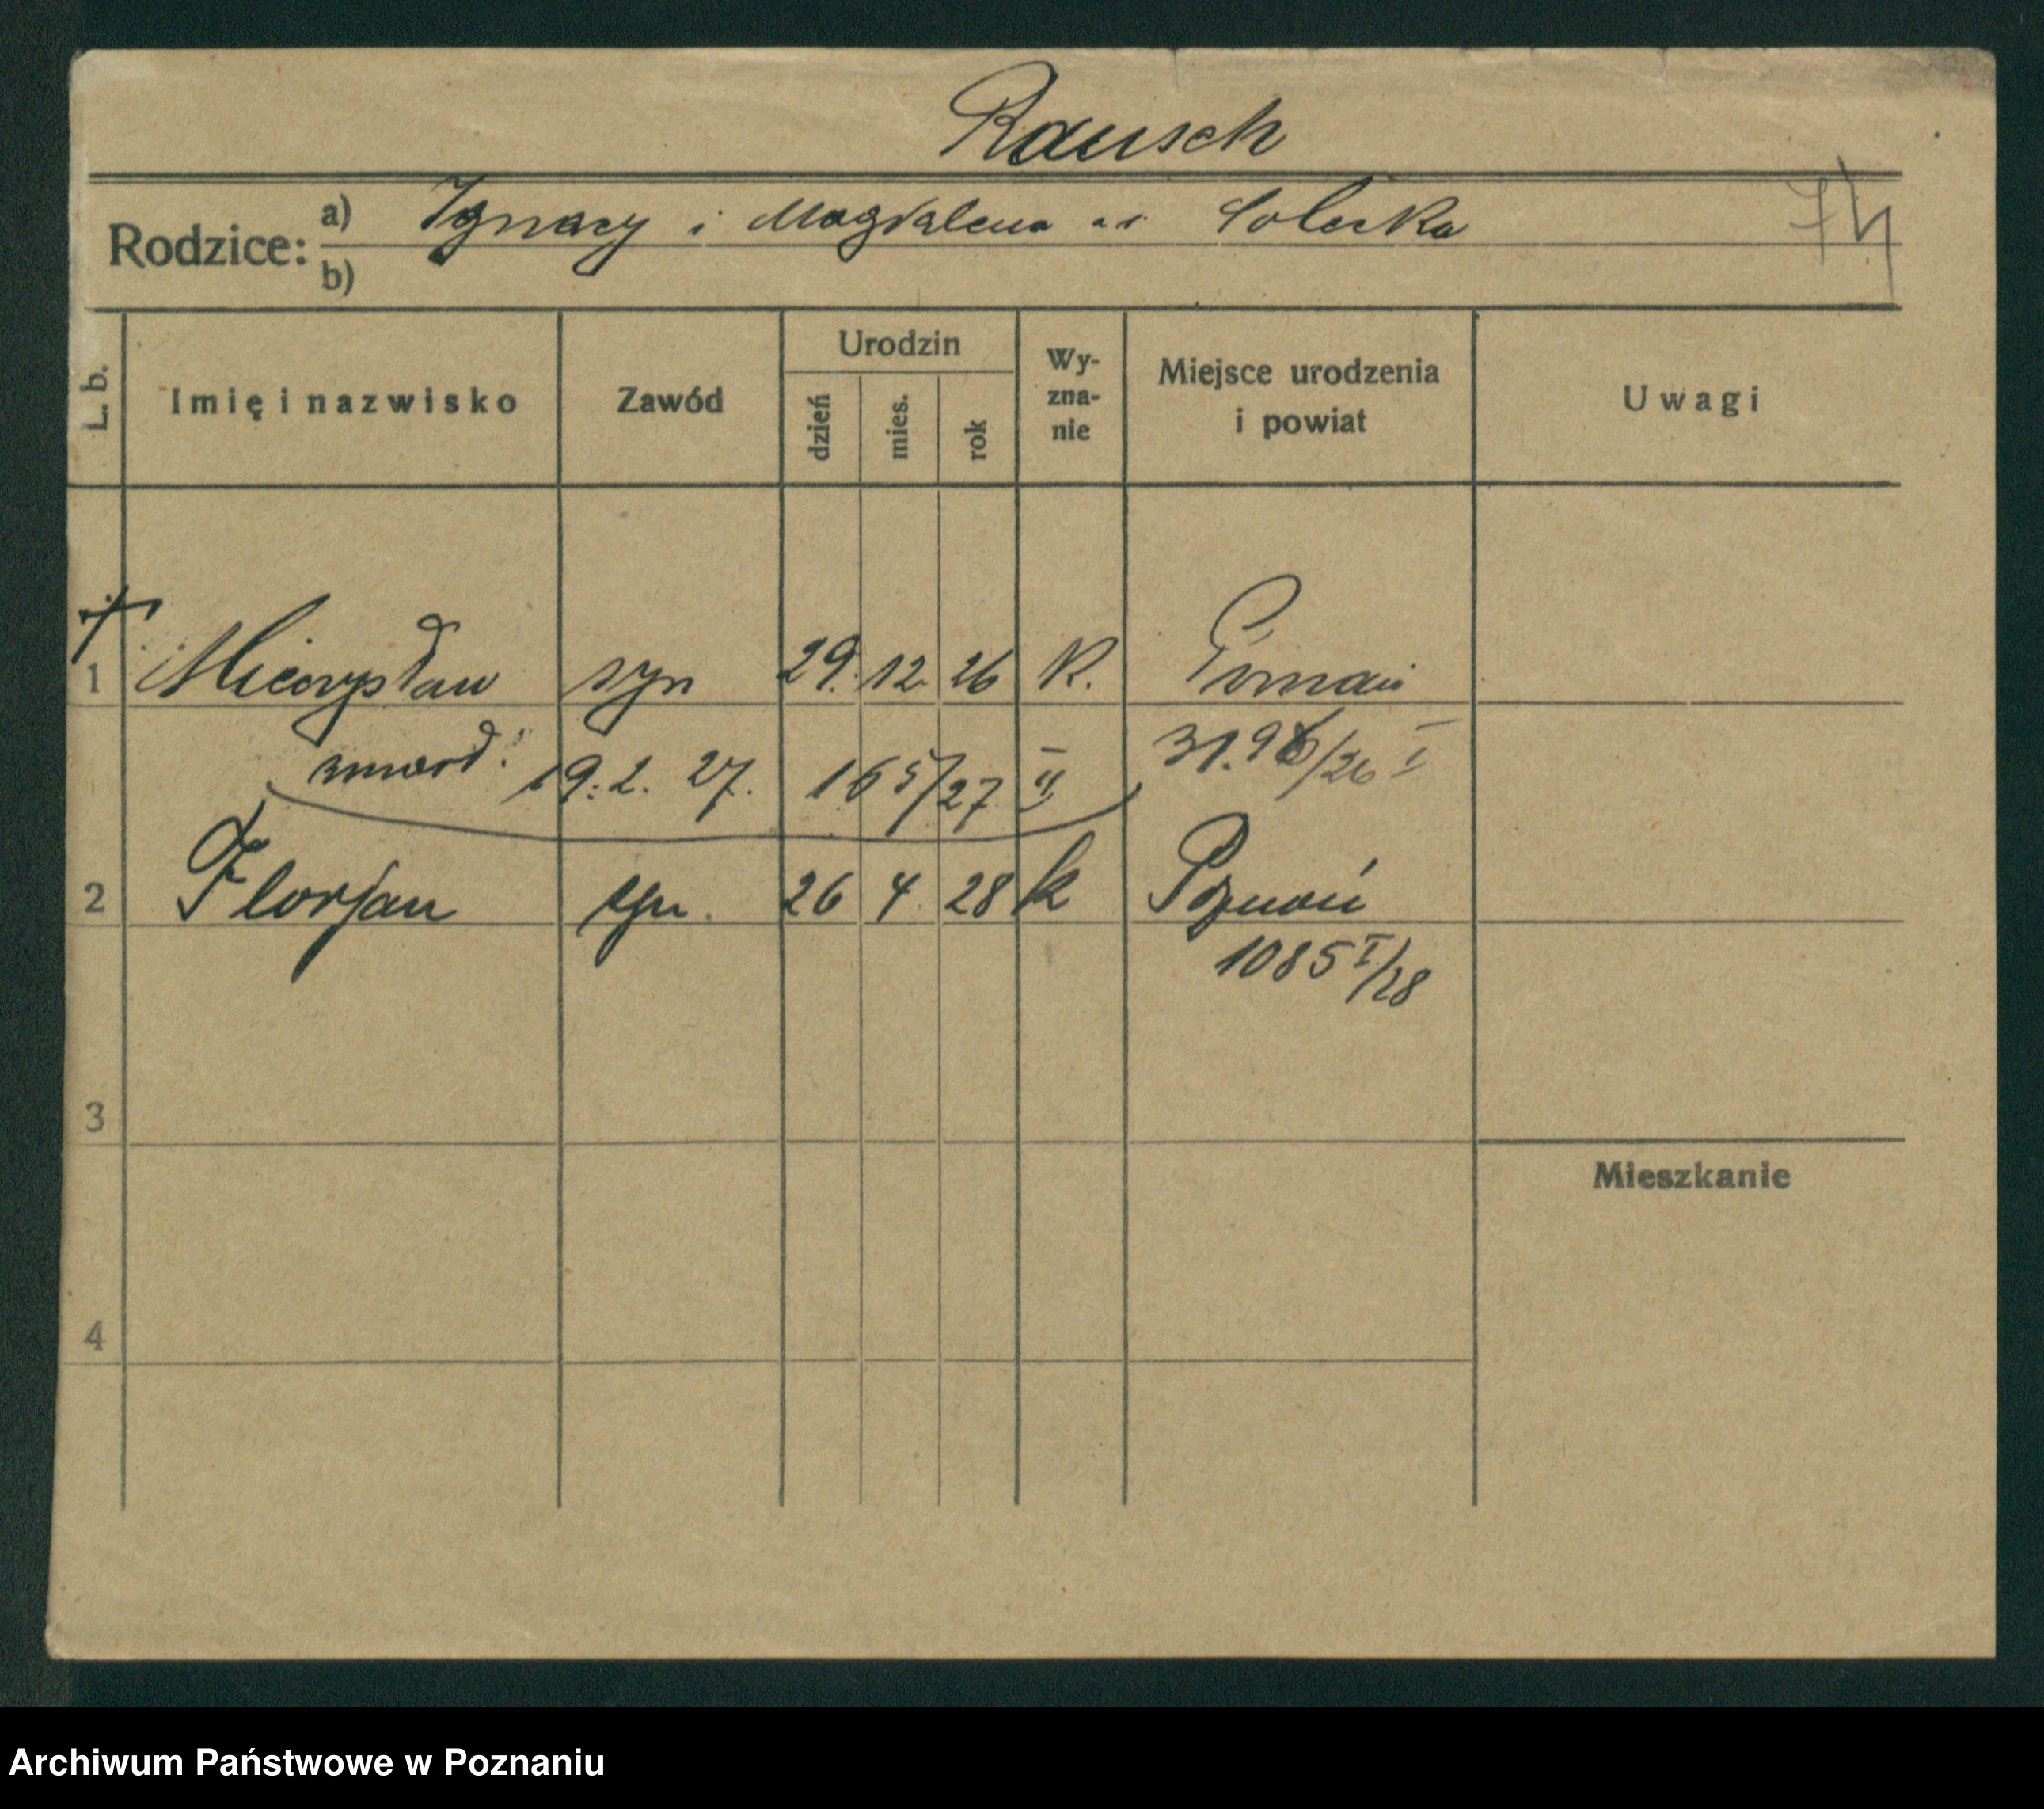 Rausch
Rodzice: a) Ignacy i Magdalena Solecka
b)
74
L. b. Imię i nazwisko Zawód Urodzin dzień mies. rok Wy-zna-nie Miejsce urodzenia i powiat Uwagi
1 Mieczysław syn 29. 12. 26 K. Poznań
zmarł. 19. 2. 27. 165/27 II
2 Florjan syn. 26 4 28 k Poznań
1085 I/28
3
Mieszkanie
4
Archiwum Państwowe w Poznaniu